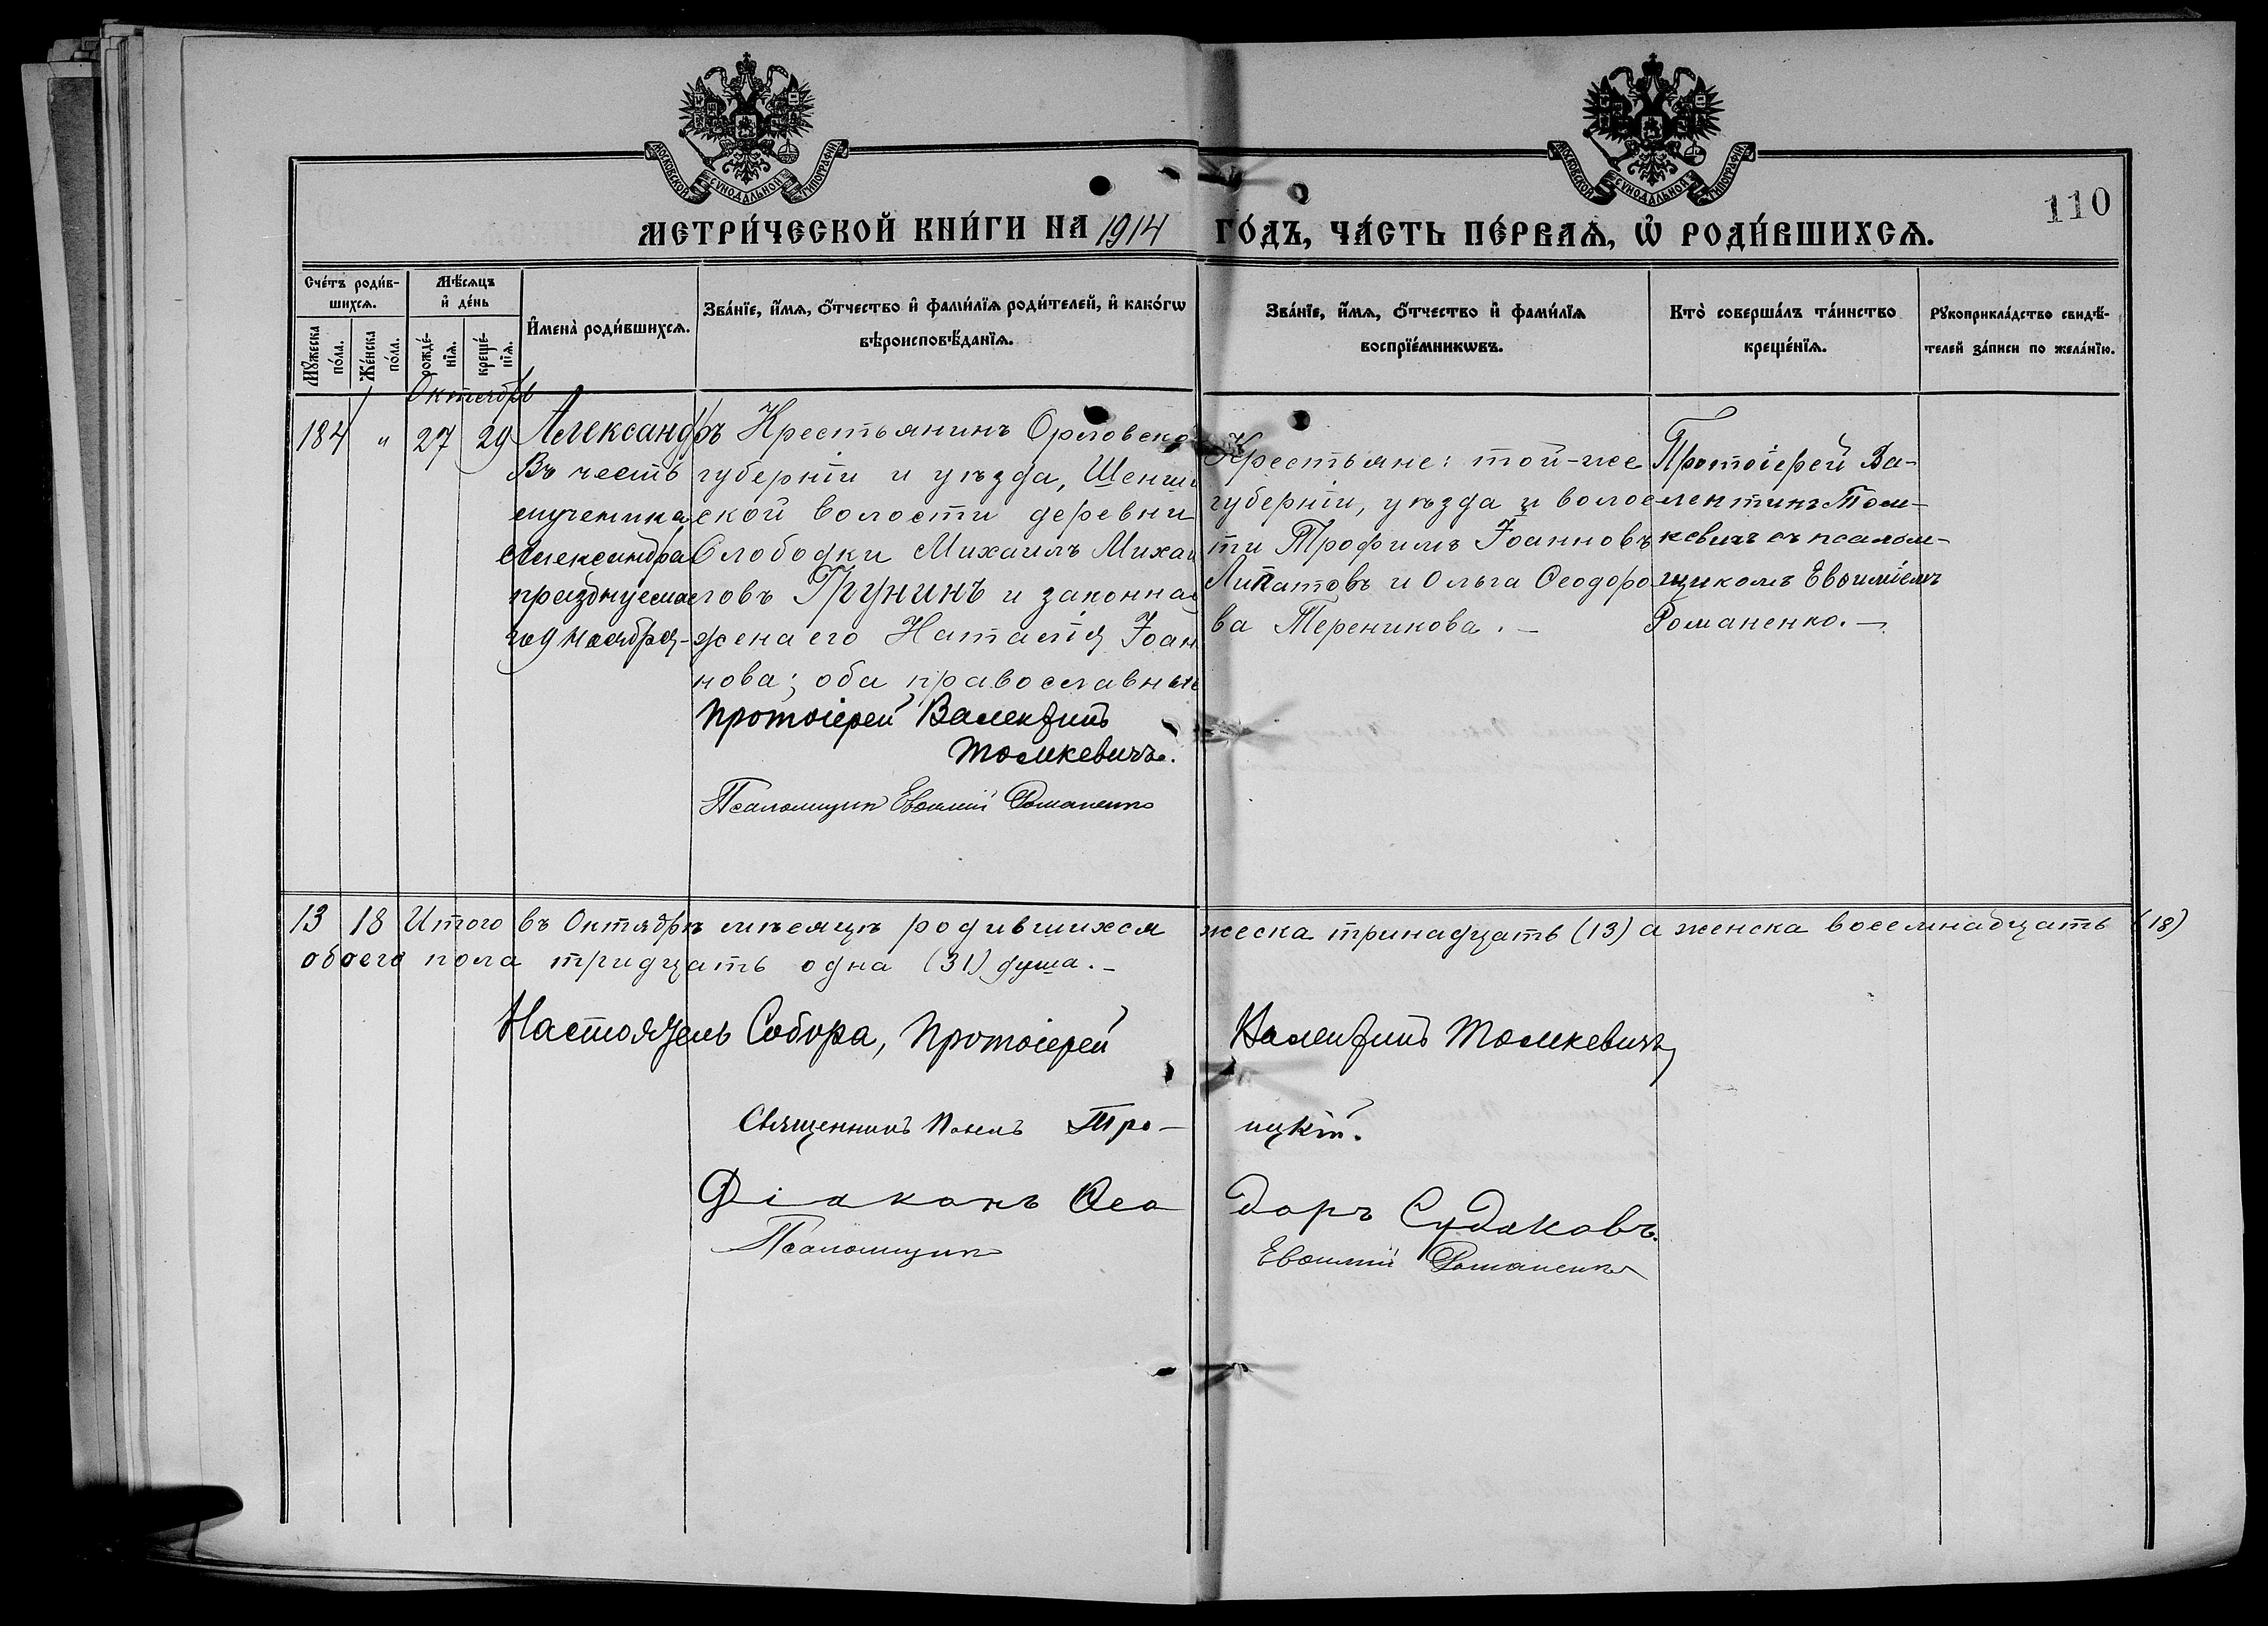 МОСКОВСКОЙ СѴНОДАЛЬНОЙ ТИПОГРАФІИ
МОСКОВСКОЙ СѴНОДАЛЬНОЙ ТИПОГРАФІИ
110
МЕТРИ́ЧЕСКОЙ КНИ́ГИ НА 1914 ГО́ДЪ, ЧА́СТЬ ПЕ́РВАѦ, Ѡ҆ РОДИ́ВШИХСѦ.
Сче́тъ роди́в-
шихсѧ.
Мꙋ́жеска по́ла.
Же́нска по́ла.
Мѣ́сѧцъ
и҆ де́нь
рожде́-
нїѧ.
креще́-
нїѧ.
И҆мена̀ роди́вшихсѧ.
Зва́нїе, и҆́мѧ, ѻ҆́тчество и҆ фами́лїѧ роди́телей, и҆ како́гѡ
вѣроисповѣ́данїѧ.
Зва́нїе, и҆́мѧ, ѻ҆́тчество и҆ фами́лїѧ
воспрїе́мникѡвъ.
Кто̀ соверша́лъ та́инство
креще́нїѧ.
Рꙋкоприкла́дство свидѣ́-
телей за́писи по жела́нїю.
Октябрь
184 " 27 29
Александръ
Въ честь
мученика
Александра
празднуема
го 9 Ноября-
Крестьянинъ Орловско
губерніи и уѣзда, Шенши
ской волости деревни
Слободки Михаилъ Михаи
ловъ Грунинъ и законная
жена его Наталія Іоан
нова; оба православные
Протоіерей Валентинъ
Томкевичъ.
Псаломщик Евѳимій Романенко
Крестьяне: той-же
губерніи, уѣзда и волос
ти Трофимъ Іоанновъ
Липатовъ и Ольга Ѳеодоро
ва Тереникова. -
Протоіерей Ва-
лентинъ Том-
кевичъ съ псалом-
щикомъ Евѳиміемъ
Романенко. -
13 18 Итого въ Октябрѣ мѣсяцѣ родившихся жеска тринадцать (13) а женска восемнадцать (18)
обоего пола тридцать одна (31) душа. -
Настоятель Собора, Протоіерей Валентинъ Томкевичъ
Священникъ Павелъ Тро- ицкій.
Діаконъ Ѳео доръ Судаковъ.
Псаломщик Евѳимій Романенко